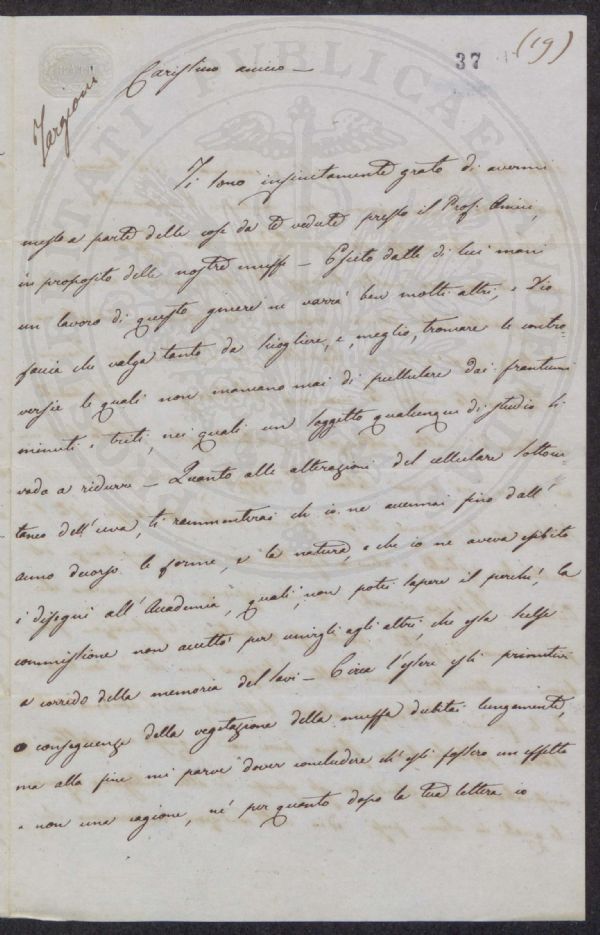 (19)
37
Targioni
Carissimo amico —
Ti sono infinitamente grato di avermi
messo a parte delle cose da te vedute presso il Prof. Amici,
in proposito delle nostre muffe — Escito dalle di lui mani
un lavoro di questo genere ne varrà ben molti altri, e Dio
faccia che valga tanto da sciogliere, e, meglio, troncare le contro-
versie le quali non mancano mai di pullulare dai frantumi
minuti e triti, nei quali un soggetto qualunque di studio si
vada a ridurre — Quanto alle alterazioni del cellulare sottocu-
taneo dell'uva, ti rammenterai che io ne accennai fino dall'
anno decorso le forme, e la natura, e che io ne aveva esibito
i disegni all'Accademia, quali, non potei sapere il perché, la
commissione non accettò per unirgli agli altri, che essa scelse
a corredo della memoria del Savi — Circa l'essere essi primitivi
o conseguenze della vegetazione della muffa dubitai lungamente,
ma alla fine mi parve dover concludere ch'essi fossero un effetto
e non una cagione, né per quanto dopo la tua lettera io